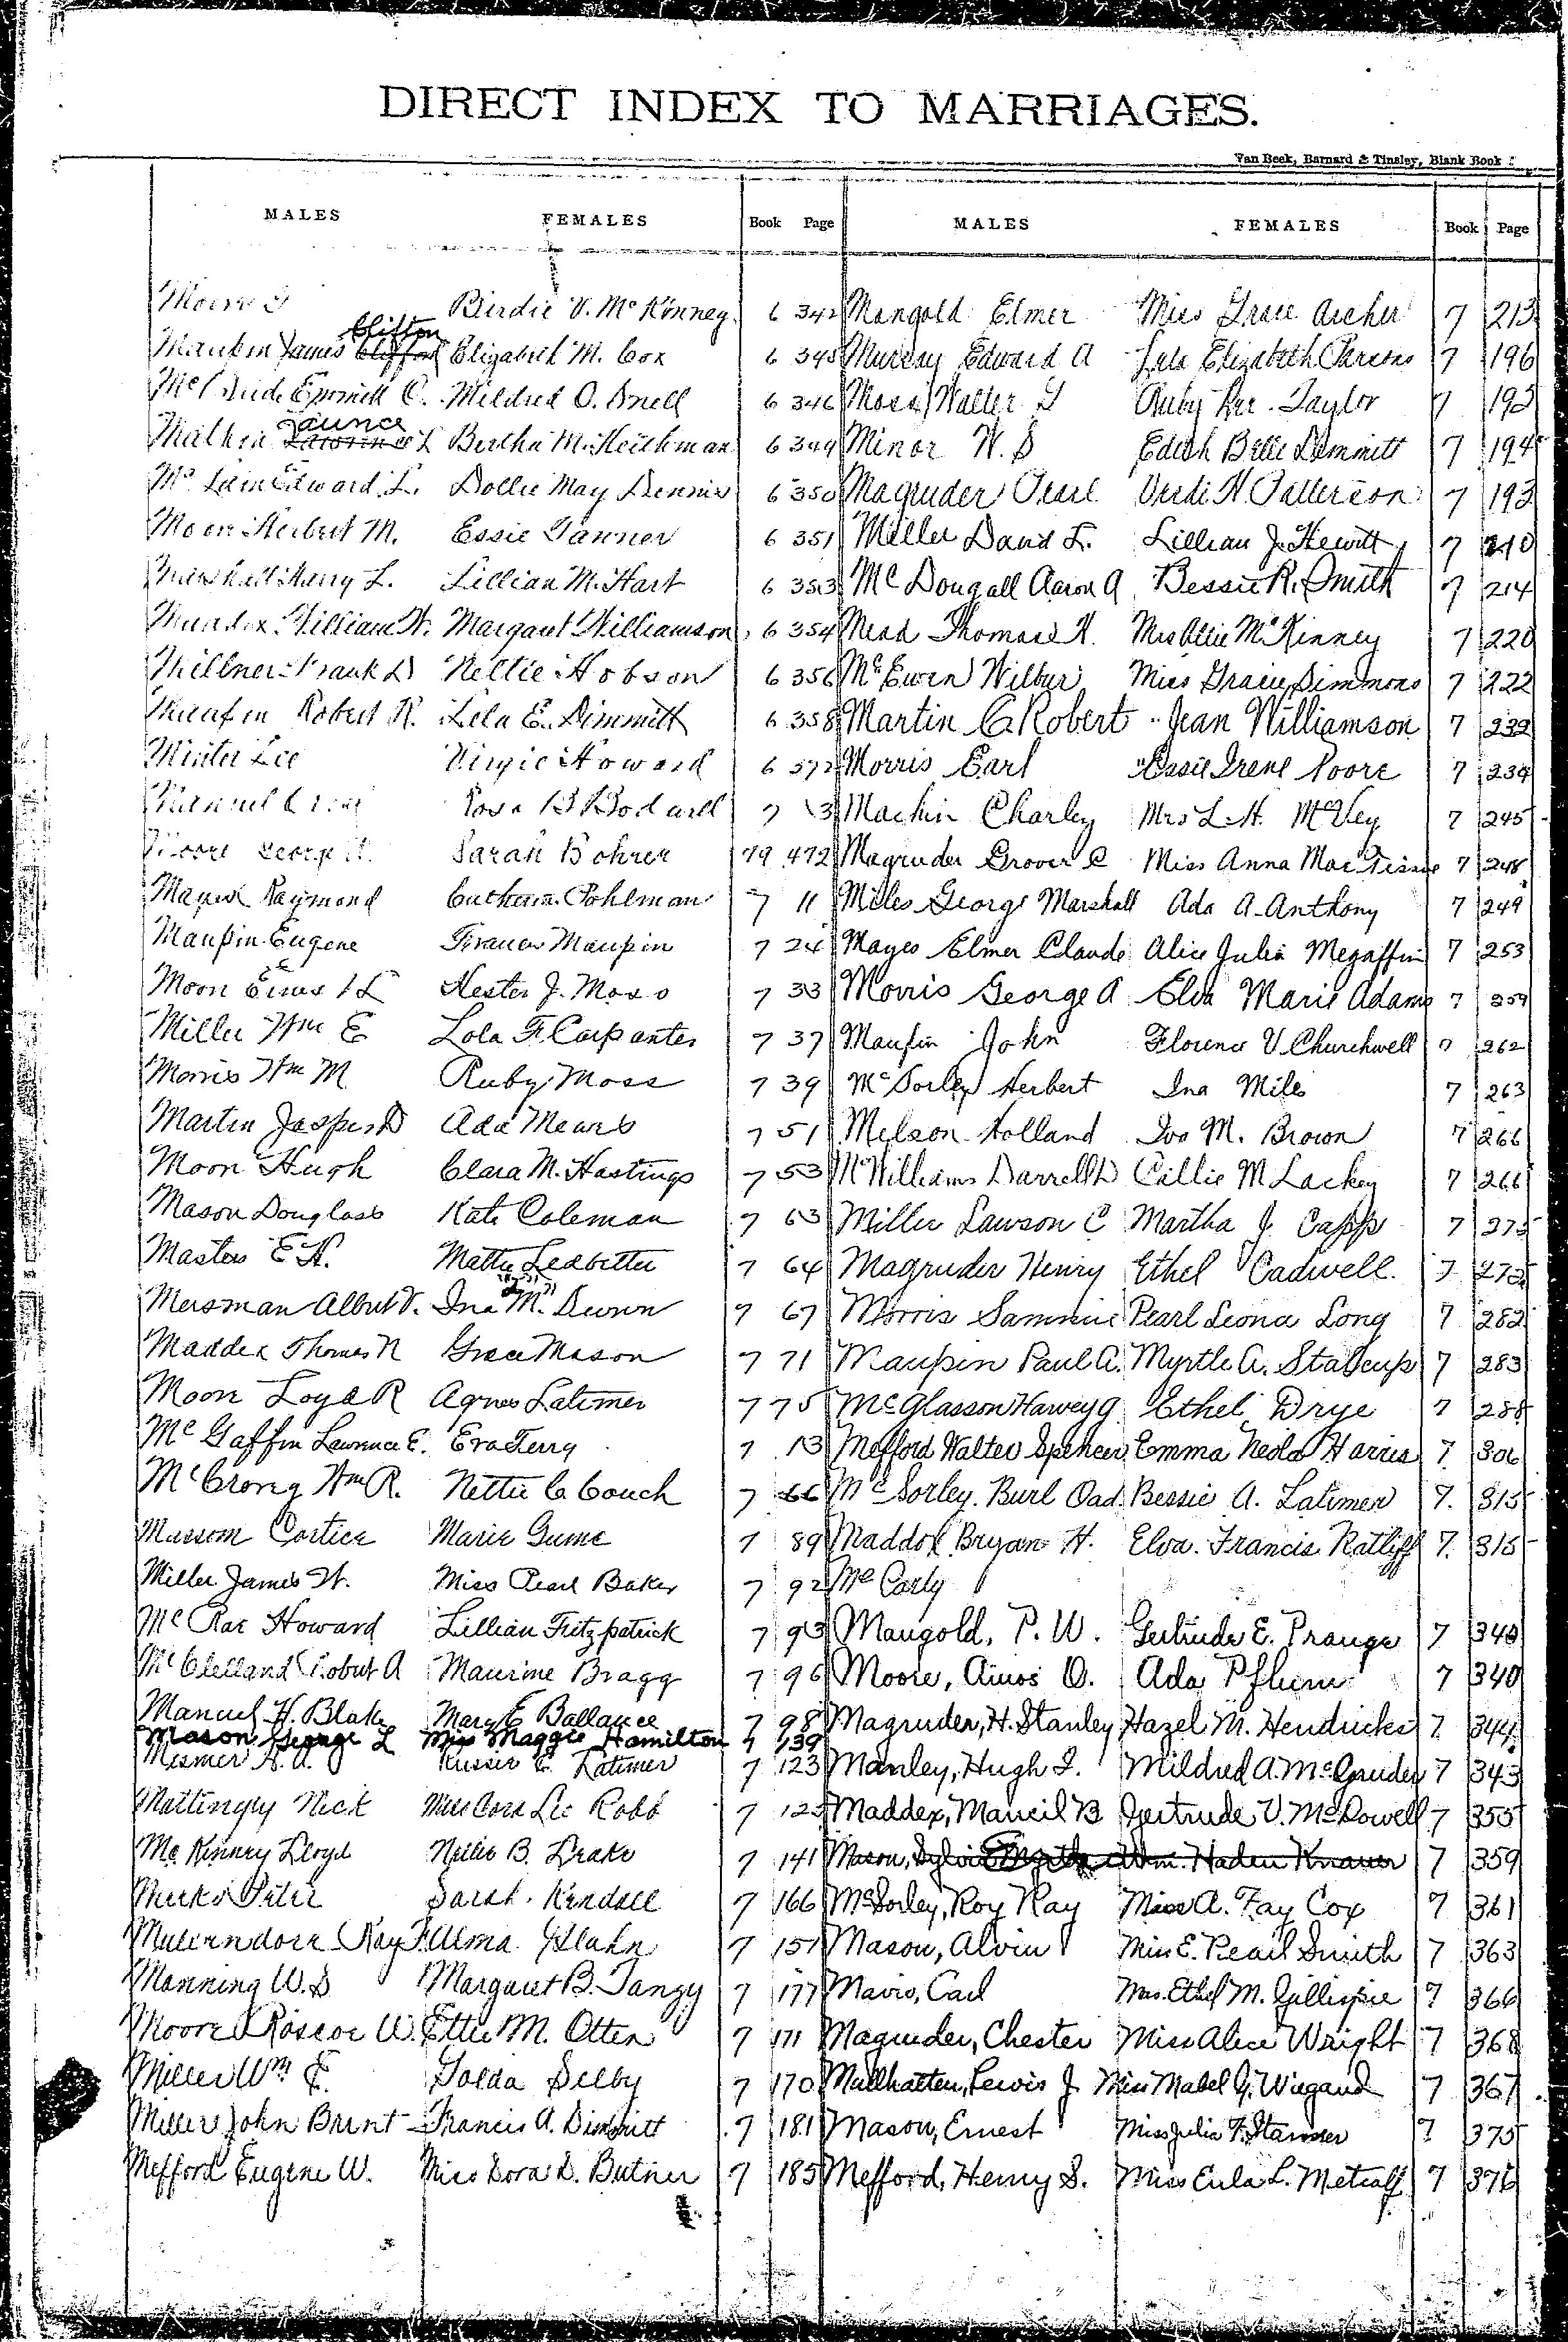 DIRECT INDEX TO MARRIAGES.
Van Beek, Barnard & Tinsley, Blank Book
MALES FEMALES Book Page MALES FEMALES Book Page
Birdie V. McKinney 6 342 Mangold Elmer Miss Grace Archer 7 213
Clifton
Maupin James Clifford Elizabeth M. Cox 6 345 Murray Edward A Lula Elizabeth Parsons 7 196
C. Mildred O. Snell 6 346 Moss Walter G Ruby Taylor 7 193
Launce
L Bertha M. Heickman 6 349 Minor W. S Edith Belle Dimmitt 7 194
Edward L. Dollie May Dennis 6 350 Magruder Pearl Verdi H. Patterson 7 193
Moon Herbert M. Essie Tanner 6 351 Miller David L. Lillian J. Hewitt 7 210
Marshall Harry L. Lillian M. Hart 6 353 McDougall Aaron A Bessie R. Smith 7 214
William H. Margaret Williamson 6 354 Mead Thomas H. Mrs Allie McKinney 7 220
Millner Frank D Nellie Hobson 6 356 McEwen Wilbur Miss Gracie Simmons 7 222
Maupin Robert R. Lela E. Dimmitt 6 358 Martin C. Robert Jean Williamson 7 232
Minter Lee Virgie Howard 6 572 Morris Earl Essie Irene Poore 7 234
Manuel Rosa B Bodwell 7 3 Machin Charley Mrs L. H. McVey 7 245
Moore George Sarah Bohrer 79 472 Magruder Grover C Miss Anna Mae 7 248
Mayer Raymond Catherine Pohlman 7 11 Miles George Marshall Ada A. Anthony 7 249
Maupin Eugene Frances Maupin 7 24 Mayes Elmer Claude Alice Julia Megaffin 7 253
Moon L Hester J. Moss 7 33 Morris George A Elva Marie Adams 7 259
Miller Wm E Lola F. Carpenter 7 37 Maupin John Florence V. Churchwell 7 262
Morris Wm M Ruby Moss 7 39 McSorley Herbert Ina Miles 7 263
Martin Jasper D Ada Mears 7 51 Melson Holland Iva M. Brown 7 266
Moon Hugh Clara M. Hastings 7 53 McWilliams Darrell D Callie M Lackey 7 266
Mason Douglass Kate Coleman 7 63 Miller Lawson C Martha J. Capp 7 275
Masters E H. Mattie Ledbetter 7 64 Magruder Henry Ethel Cadwell 7 272
Mersman Albert V. Ina M. Dunn 7 67 Morris Sammie Pearl Leona Long 7 282
Maddex Thomas N Grace Mason 7 71 Maupin Paul A. Myrtle A. Stalcup 7 283
Moon Loyd R Agnes Latimer 7 75 McGlasson Harvey G Ethel Drye 7 288
McGaffin Lawrence E. Eva Terry 7 13 Mefford Walter Spencer Emma Neola Harris 7 306
McCrory Wm R. Nettie C. Couch 7 66 McSorley Burl Oad Bessie A. Latimer 7 315
Mussom Cortice Marie Gume 7 89 Maddox Bryan H. Elva Francis Ratliff 7 315
Miller James H. Miss Pearl Baker 7 92 McCarty
McRae Howard Lillian Fitzpatrick 7 93 Mangold, P. W. Gertrude E. Prange 7 340
McClelland Robert A Maurine Bragg 7 96 Moore, Amos O. Ada Pflum 7 340
Manuel H. Blake Mary E Ballance 7 98 Magruder, H. Stanley Hazel M. Hendricks 7 344
Mason George L Miss Maggie Hamilton 7 139
Mesmer A. A. Russie E. Latimer 7 123 Manley, Hugh I. Mildred A. McGruder 7 343
Mattingly Nick Miss Cora Lee Robb 7 125 Maddex, Maneil B Gertrude V. McDowell 7 355
McKinney Lloyd Nellie B. Drake 7 141 Mason, Sylvia Myrtle Wm. Haden Knauer 7 359
Meeks Peter Sarah Kendall 7 166 McSorley, Roy Ray Miss A. Fay Cox 7 361
Ray F. Alma Hahn 7 157 Mason, Alvin Miss E. Pearl Smith 7 363
Manning W. S Margaret B. Tangy 7 177 Mavis, Carl Mrs. Ethel M. Gillispie 7 366
Moore Roscoe W. Ettie M. Otten 7 171 Magruder, Chester Miss Alice Wright 7 368
Miller Wm F. Golda Selby 7 170 Mullhatten, Lewis J. Miss Mabel G. Wiegand 7 367
Miller John Brent Francis A. Dimmitt 7 181 Mason, Ernest Miss Julia F. Stanner 7 375
Mefford Eugene W. Miss Dora D. Butner 7 185 Mefford, Henry S. Miss Eula L. Metcalf 7 376